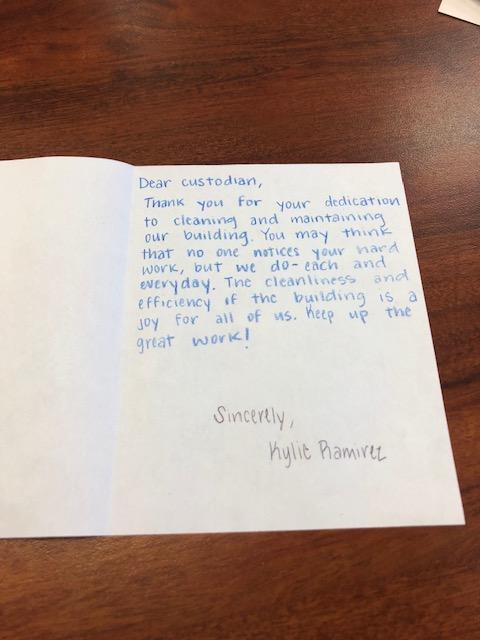 Dear custodian,
Thank you for your dedication
to cleaning and maintaining
our building. You may think
that no one notices your hard
work, but we do-each and
everyday. The cleanliness and
efficiency if the building is a
joy for all of us. Keep up the
great work!
Sincerely,
Kylie Ramirez